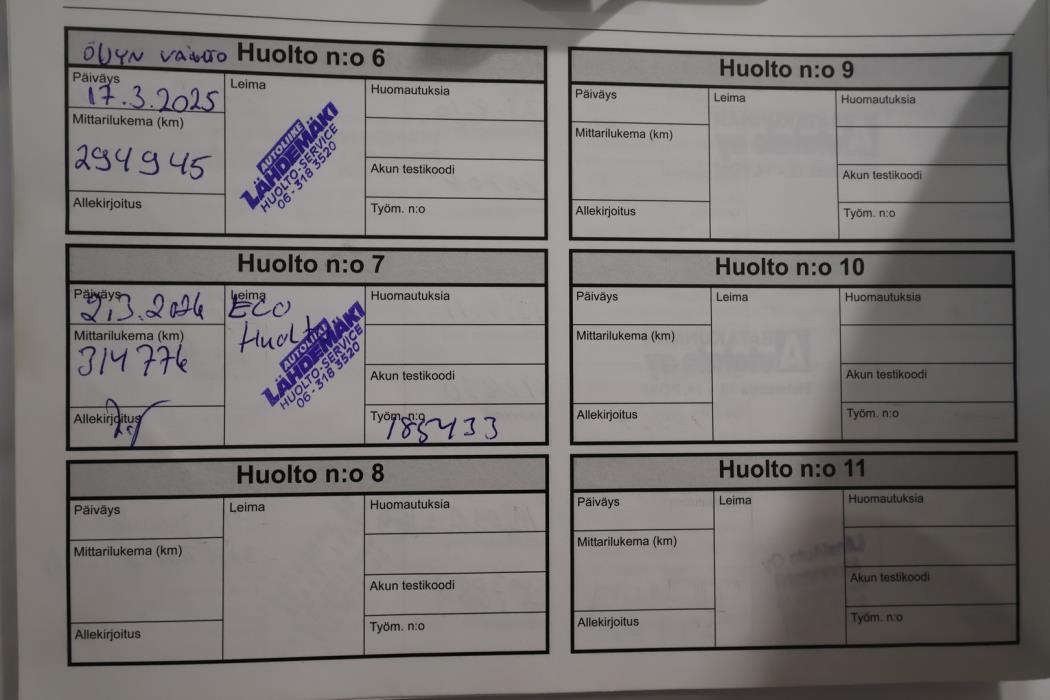 ÖLJYN VAIHTO Huolto n:o 6
Päiväys
17.3.2025
Mittarilukema (km)
294945
Allekirjoitus
Leima
AUTOLIIKE
LÄHDEMÄKI
HUOLTO-SERVICE
06 - 318 3520
Huomautuksia
Akun testikoodi
Työm. n:o
Huolto n:o 7
Päiväys
2.3.2026
Mittarilukema (km)
314776
Allekirjoitus
Leima
ECO
Huolto
AUTOLIIKE
LÄHDEMÄKI
HUOLTO-SERVICE
06 - 318 3520
Huomautuksia
Akun testikoodi
Työm. n:o
185433
Huolto n:o 8
Päiväys
Mittarilukema (km)
Allekirjoitus
Leima
Huomautuksia
Akun testikoodi
Työm. n:o
Huolto n:o 9
Päiväys
Mittarilukema (km)
Allekirjoitus
Leima
Huomautuksia
Akun testikoodi
Työm. n:o
Huolto n:o 10
Päiväys
Mittarilukema (km)
Allekirjoitus
Leima
Huomautuksia
Akun testikoodi
Työm. n:o
Huolto n:o 11
Päiväys
Mittarilukema (km)
Allekirjoitus
Leima
Huomautuksia
Akun testikoodi
Työm. n:o